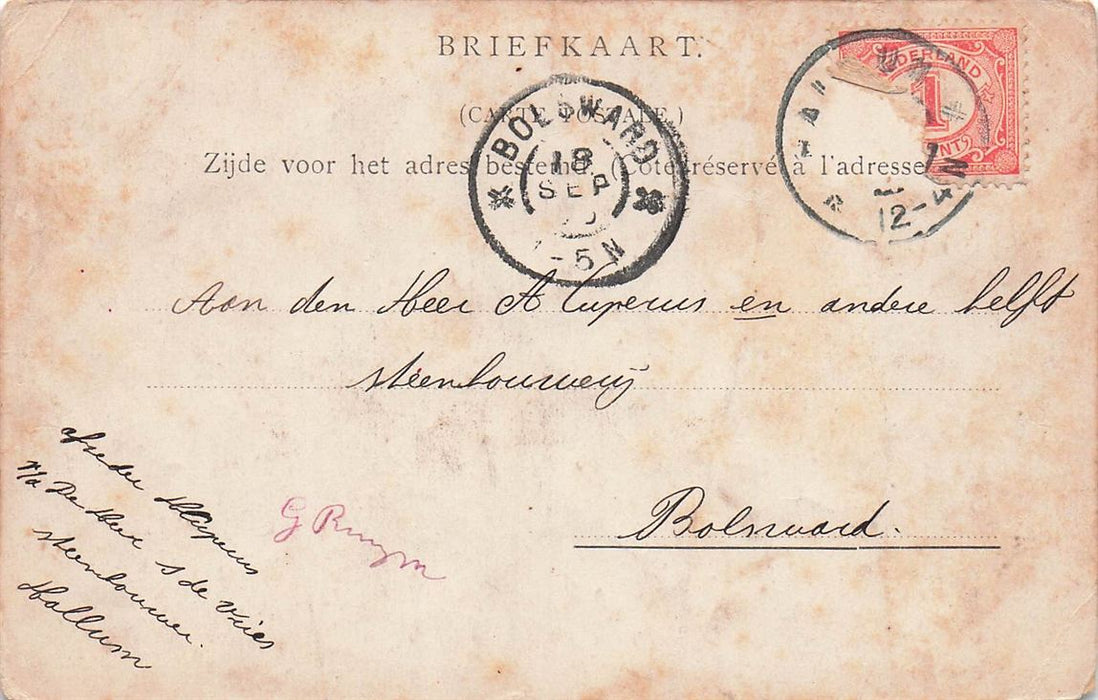 BRIEFKAART.
(CARTE POSTALE.)
Zijde voor het adres bestemd. (Côté réservé à l'adresse
NEDERLAND
1
CENT
BOLSWARD
18
SEP
-5N
12-4N
Aan den Heer A Cuperus en andere helft
steenhouwerij
Bolsward.
afzender
v/d De Heer S de Vries
steenhouwer.
Hallum
G